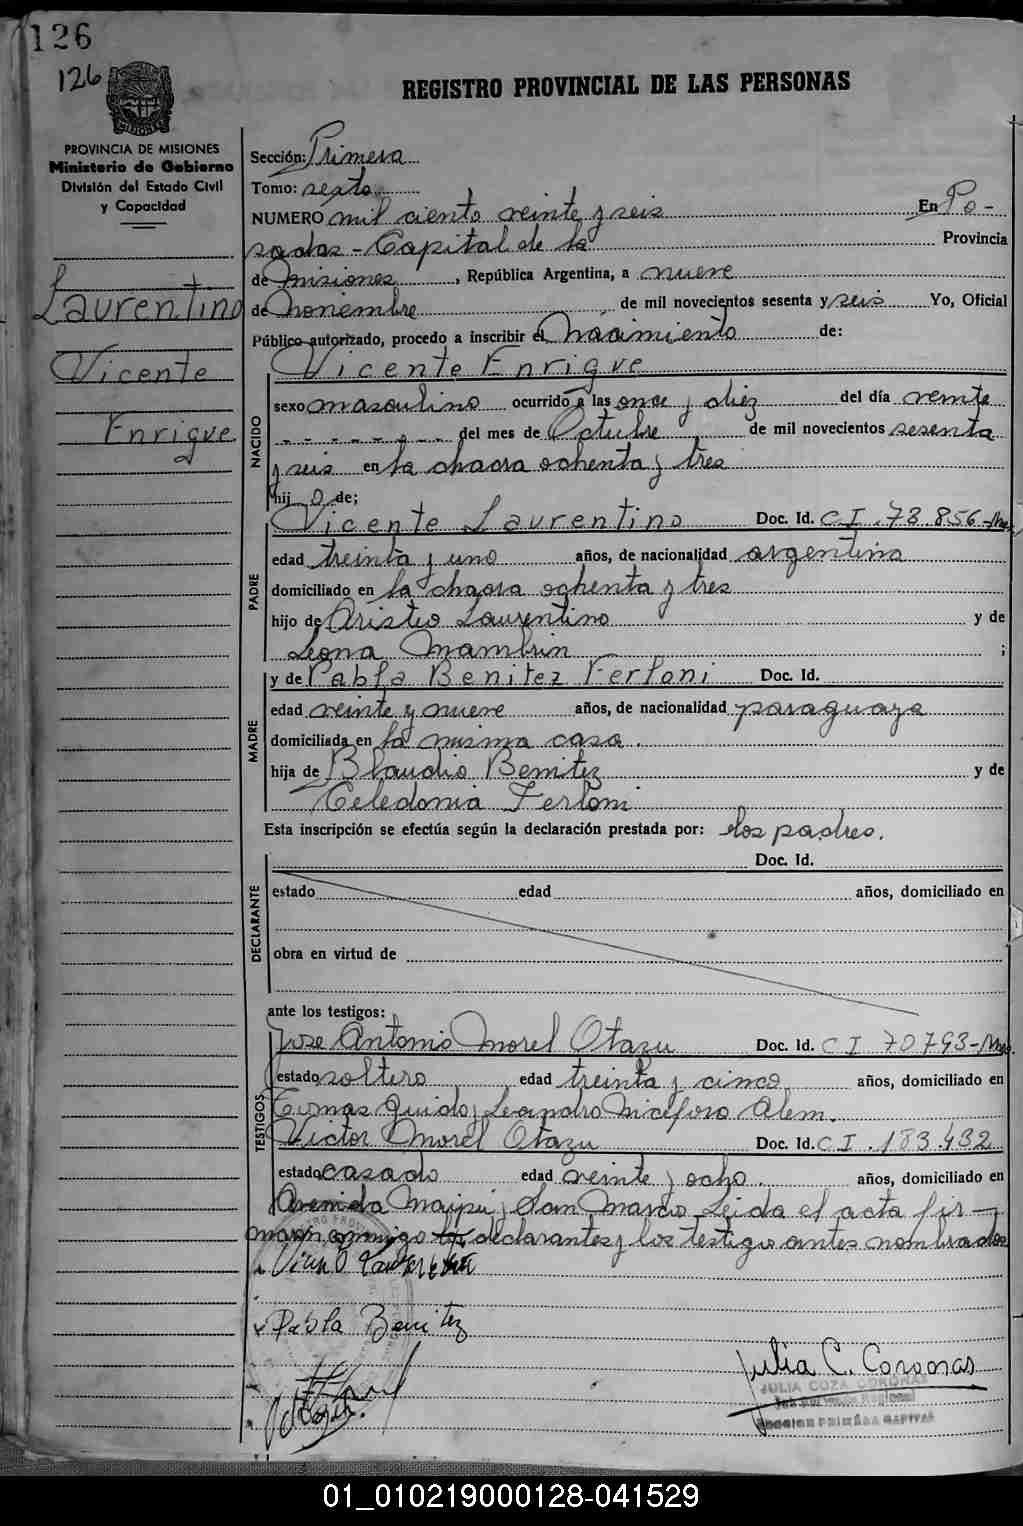 126
126
REGISTRO PROVINCIAL DE LAS PERSONAS
MISIONES
PROVINCIA DE MISIONES
Ministerio de Gobierno
División del Estado Civil
y Capacidad
Laurentino
Vicente
Enrique
Sección: Primera
Tomo: sexto
NUMERO mil ciento veinte y seis En Po-
sadas - Capital de la Provincia
de Misiones, República Argentina, a nueve
de Noviembre de mil novecientos sesenta y seis Yo, Oficial
Público autorizado, procedo a inscribir el Nacimiento de:
NACIDO
Vicente Enrique
sexo masculino ocurrido a las once y diez del día veinte
del mes de Octubre de mil novecientos sesenta
y seis en la chacra ochenta y tres
hij o de;
PADRE
Vicente Laurentino Doc. Id. C I . 73.856-Mnes
edad treinta y uno años, de nacionalidad argentina
domiciliado en la chacra ochenta y tres
hijo de Aristeo Laurentino y de
Leona Mambrin ;
MADRE
y de Pabla Benitez Ferloni Doc. Id.
edad veinte y nueve años, de nacionalidad paraguaya
domiciliada en la misma casa.
hija de Blaudio Benitez y de
Celedonia Ferloni
Esta inscripción se efectúa según la declaración prestada por: los padres.
DECLARANTE
Doc. Id.
estado edad años, domiciliado en
obra en virtud de
ante los testigos:
TESTIGOS
Jose Antonio Morel Otazu Doc. Id. C I 70793-Mnes
estado soltero edad treinta y cinco años, domiciliado en
Tomas Guido y Leandro Niceforo Alem.
Victor Morel Otazu Doc. Id. C I . 183.432
estado casado edad veinte y ocho. años, domiciliado en
Avenida Maipú y San Marcos Leida el acta fir-
maron conmigo los declarantes y los testigos antes nombrados
Pabla Benitez
Julia C. Coronas
JULIA COZA CORONAS
SECCION PRIMERA CAPITAL
01_010219000128-041529